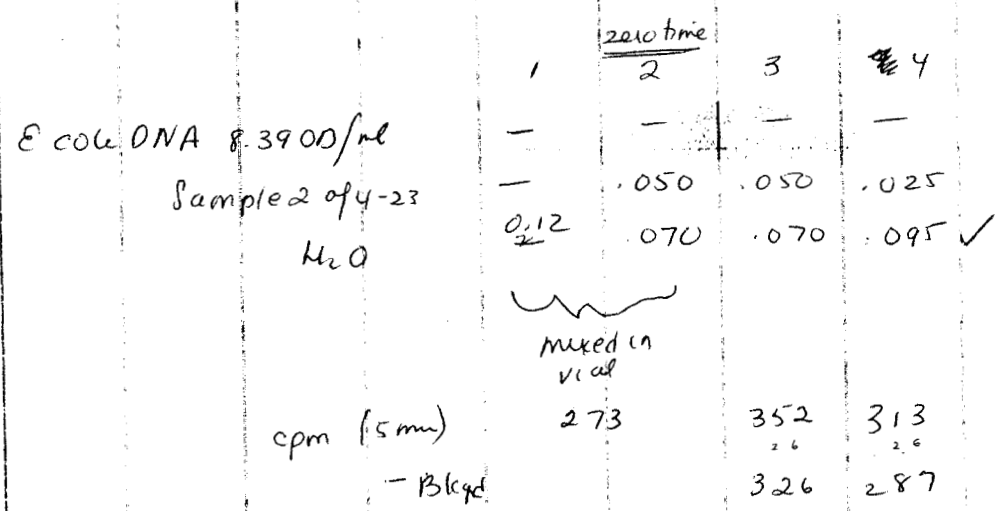 zero time
1 2 3 4
E coli DNA 8.39 OD/ml — — — —
Sample 2 of 4-23 — .050 .050 .025
H2O 0.12 .070 .070 .095 ✓
mixed in
vial
cpm (5 min) 273 352 313
26 26
- Bkgd 326 287